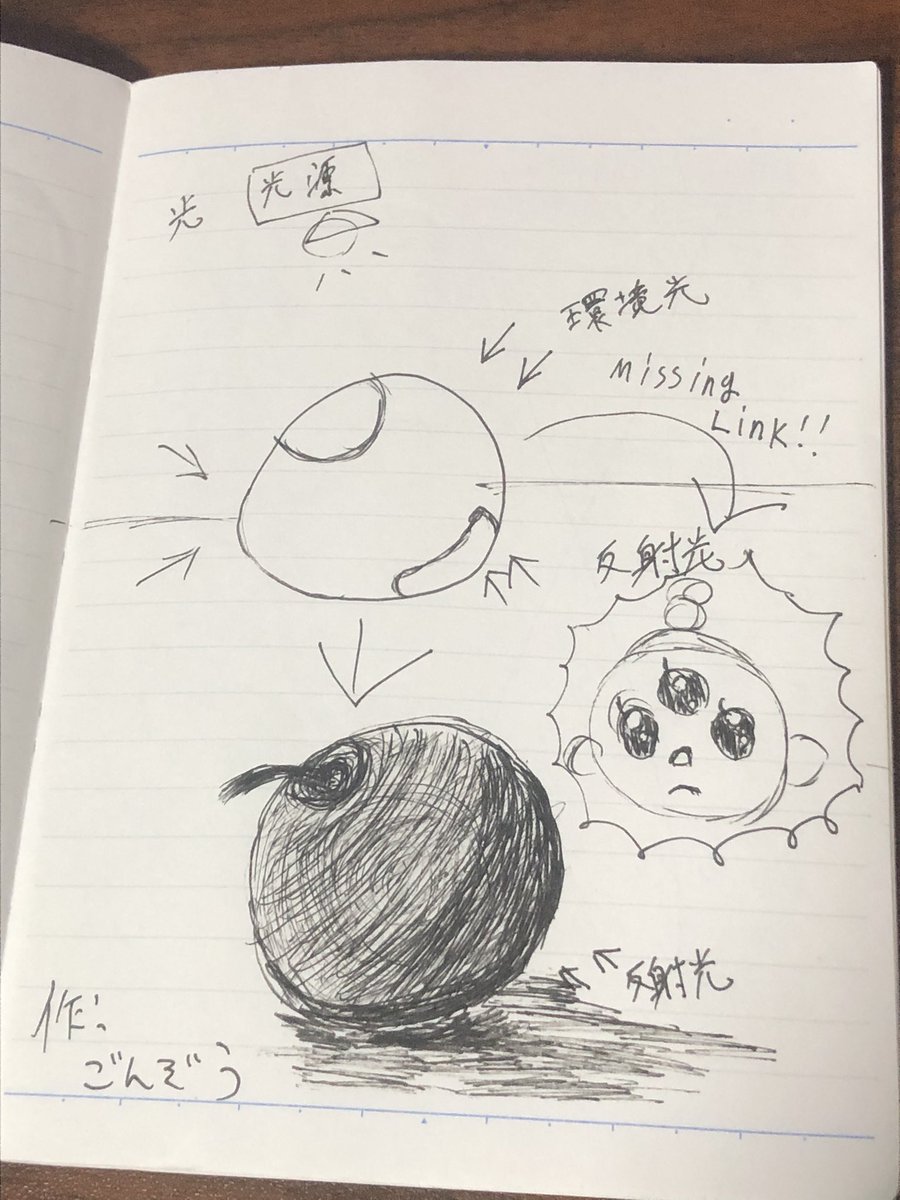 光
光源
環境光
Missing
Link!!
反射光
反射光
作:
ごんぞう